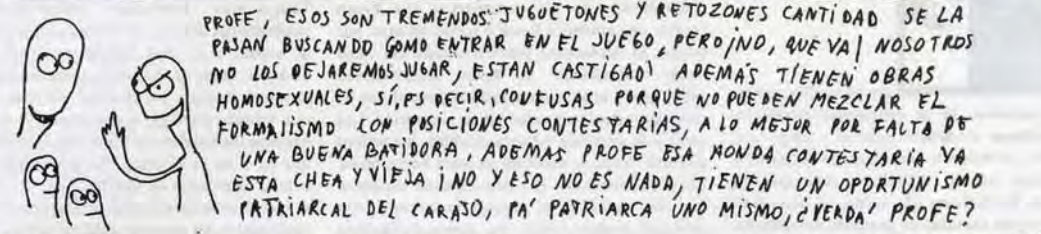 PROFE, ESOS SON TREMENDOS JUGUETONES Y RETOZONES CANTIDAD SE LA
PASAN BUSCANDO COMO ENTRAR EN EL JUEGO, PERO ¡NO, QUE VA! NOSOTROS
NO LOS DEJAREMOS JUGAR, ESTAN CASTIGAO! ADEMÁS TIENEN OBRAS
HOMOSEXUALES, SÍ, ES DECIR, CONFUSAS PORQUE NO PUEDEN MEZCLAR EL
FORMALISMO CON POSICIONES CONTESTARIAS, A LO MEJOR POR FALTA DE
UNA BUENA BATIDORA, ADEMAS PROFE ESA HONDA CONTESTARIA YA
ESTA CHEA Y VIEJA ¡NO Y ESO NO ES NADA, TIENEN UN OPORTUNISMO
PATRIARCAL DEL CARAJO, PA' PATRIARCA UNO MISMO, ¿VERDA' PROFE?